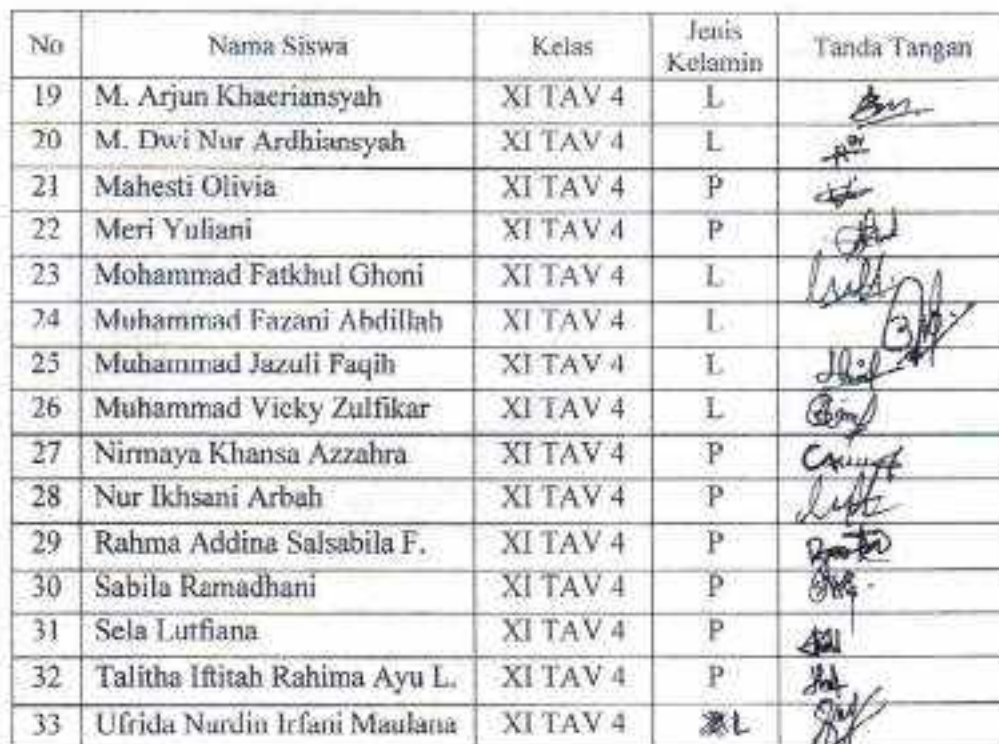 No Nama Siswa Kelas Jenis Kelamin Tanda Tangan
19 M. Arjun Khaeriansyah XI TAV 4 L
20 M. Dwi Nur Ardhiansyah XI TAV 4 L
21 Mahesti Olivia XI TAV 4 P
22 Meri Yuliani XI TAV 4 P
23 Mohammad Fatkhul Ghoni XI TAV 4 L
24 Muhammad Fazani Abdillah XI TAV 4 L
25 Muhammad Jazuli Faqih XI TAV 4 L
26 Muhammad Vicky Zulfikar XI TAV 4 L
27 Nirmaya Khansa Azzahra XI TAV 4 P
28 Nur Ikhsani Arbah XI TAV 4 P
29 Rahma Addina Salsabila F. XI TAV 4 P
30 Sabila Ramadhani XI TAV 4 P
31 Sela Lutfiana XI TAV 4 P
32 Talitha Iftitah Rahima Ayu L. XI TAV 4 P
33 Ufrida Nurdin Irfani Maulana XI TAV 4 L